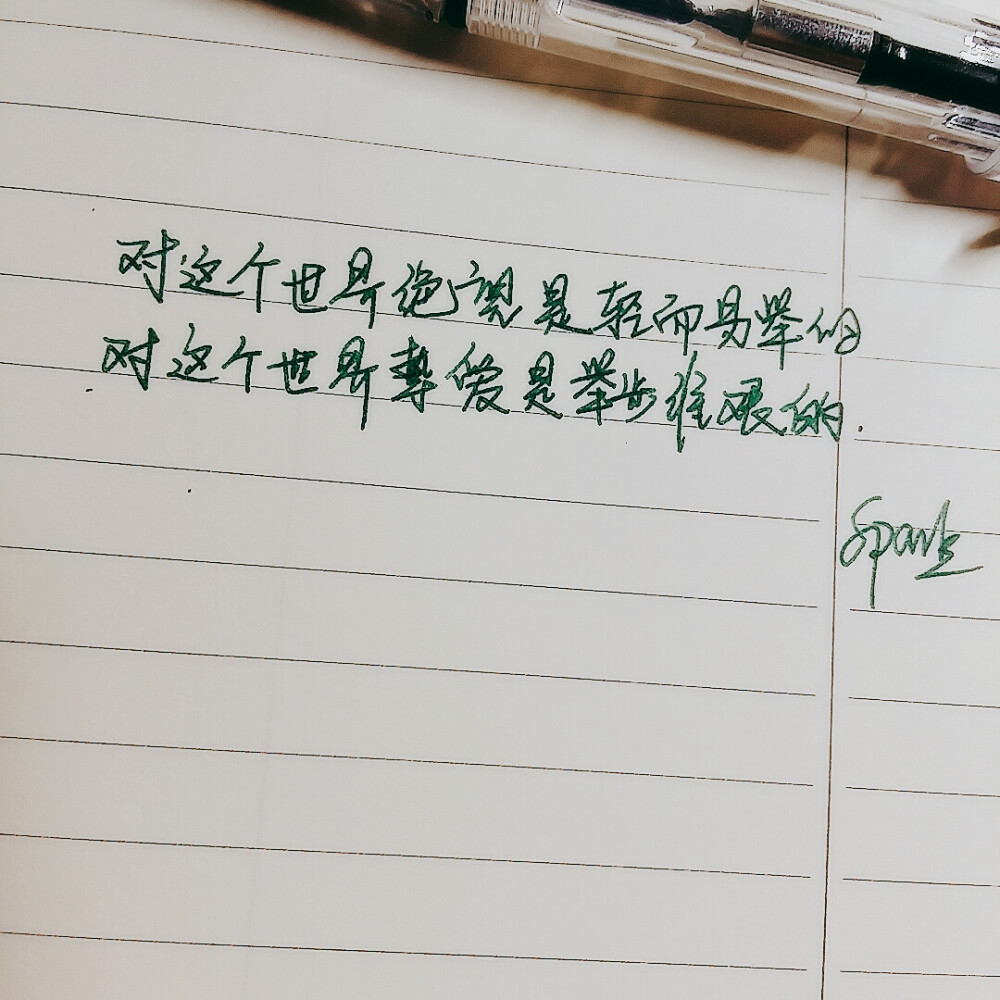 对这个世界绝望是轻而易举的
对这个世界挚爱是举步维艰的.
Spark